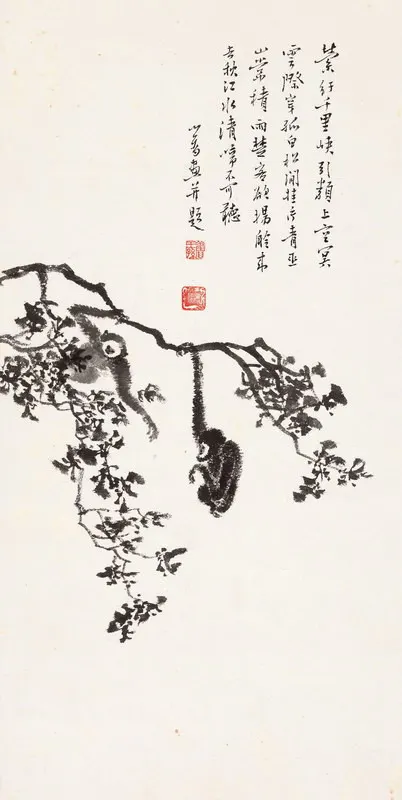 縈紆千里峽引類上空冥
雲際孤白松間挂青巫
山常積雨楚客欲揚舲來
去秋江水清啼不可聽
心畬畫并題